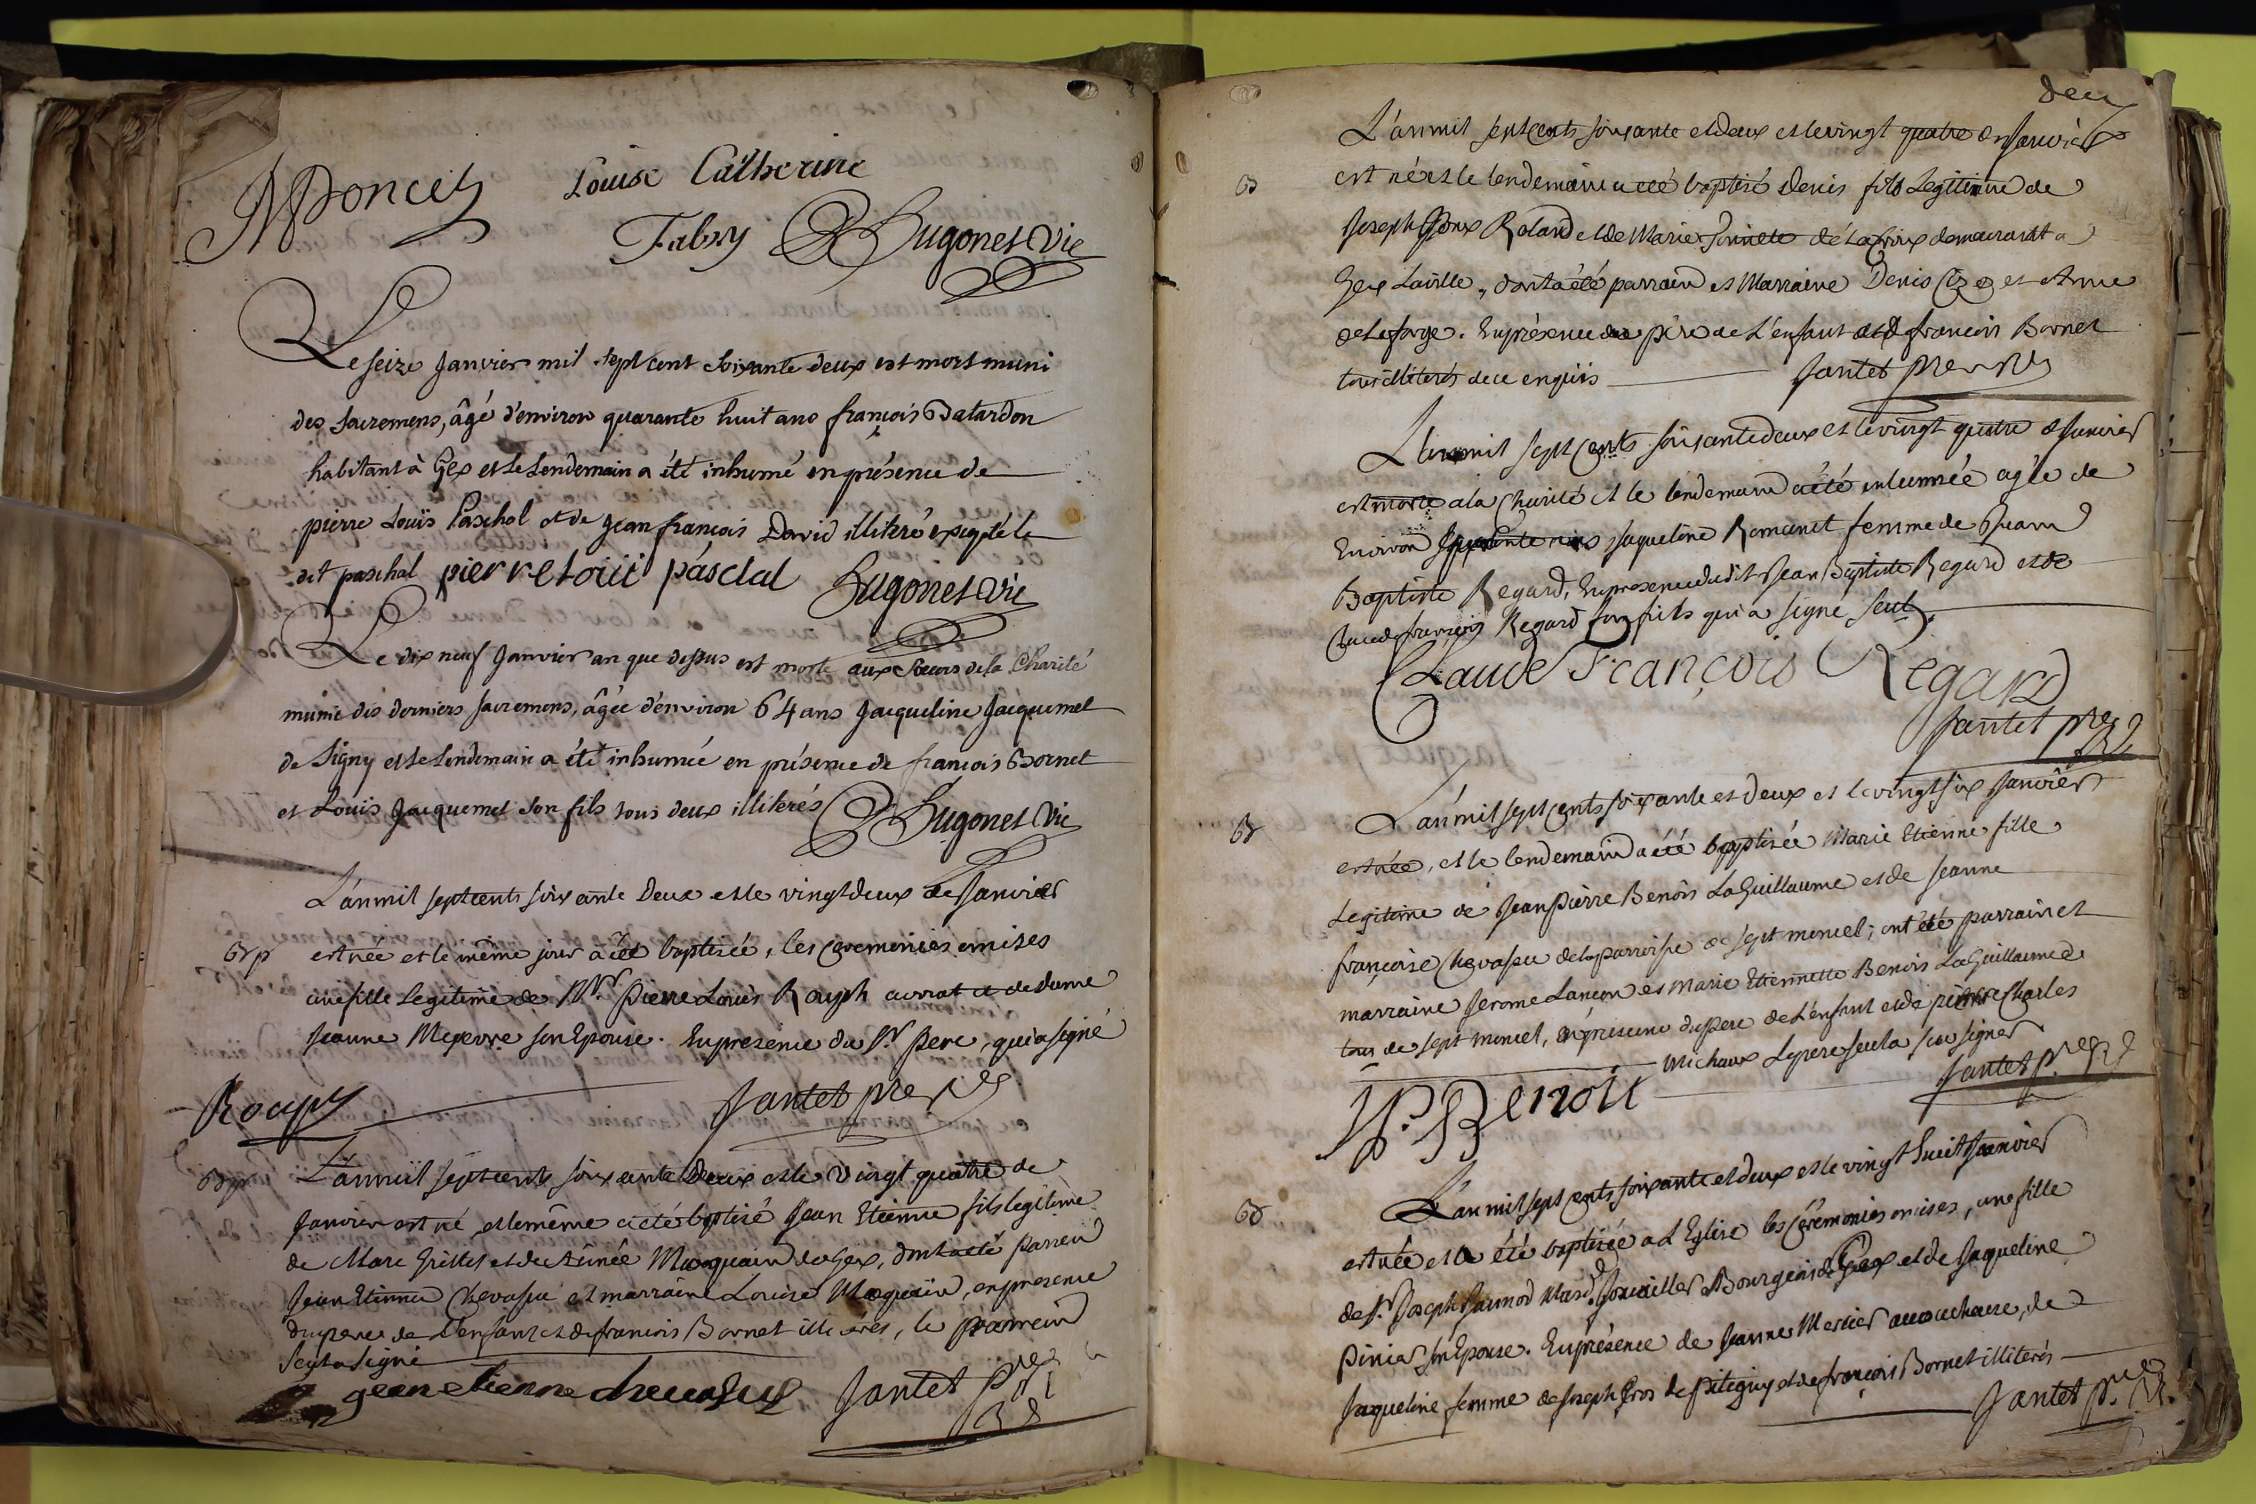 Poncet
Louise Catherine
Fabry Hugonet Vic
Le seize Janvier mil sept cent soixante deux est mort muni
des sacremens, âgé d'environ quarante huit ans françois Batardon
habitant à Gex et le lendemain a été inhumé en présence de
pierre Louis Paschal et de Jean françois David illiteré excepté le
dit paschal pierre loüi páscal Hugonet Vic
Le dix neuf Janvier an que dessus est morte aux Sœurs de la Charité
munie des derniers sacremens, âgée d'environ 64 ans Jacqueline Jacquemet
de Signy et le lendemain a été inhumée en présence de francois Bornet
et Louis Jacquemet son fils tous deux illiterés Hugonet Vic
L'an mil sept cents soixante Deux et le vingt deux de Janvier
est née et le même jour a été baptisée, les Ceremonies omises
une fille Legitime de Mr. Pierre Louis Rouph avocat et de dame
Jeanne son Epouse. En presence du Sr Pere, qui a signé
Rouph Jantet pre
L'an mil sept cents soixante Deux et le Vingt quatre de
Janvier est né et le même a été baptisé Jean Etienne fils legitime
de Marc Grillet et de Aimée de Gex, dont a été Parrein
Jean Etienne Chevassu et marraine Louise en presence
du pere de L'enfant et de francois Bornet illiterés, le parrein
seul a Signé
jean etienne chevasus Jantet p.re
deux
L'an mil sept Cents soixante et deux et le vingt quatre de Janvier
est né et le lendemain a été baptisé Denis fils Legitime de
Joseph Roland et de Marie de Lacroix demeurant a
Gex La ville, dont a été parrain et Marraine Denis et Anne
de La forge. En présence du père de L'enfant et de francois Bornet
tous illiterés de ce enquis Jantet pre
L'an mil sept Cents soixante deux et le vingt quatre de Janvier
est morte a la Charité et le lendemain a été inhumée agée de
Environ ans Jaqueline Romanet femme de Jean
Baptiste Regard, En presence du dit Jean Baptiste Regard et de
Claude francois Regard son fils qui a signé seul.
Claude François Regard
Jantet p.re
L'an mil sept Cents soixante et deux et le vingt six Janvier
est née, et le lendemain a été baptisée Marie Etienne fille
Legitime de Jean Pierre Benois La Guillaume et de Jeanne
françoise Chevassu de la parroisse de sept moncel; ont été parrain et
marraine Jerome Lancon et Marie Etiennette Benois La Guillaume
tous de sept moncel, En présence du Pere de L'enfant et de pierre Charles
Michaux Le pere seul a sçu signer
J.P. Benoit Jantet p.re
L'an mil sept cents soixante et deux et le vingt huit Janvier
est née et a été baptisée a L'Eglise les Cérémonies omises, une fille
de Sr. Joseph Mard. Bourgeois de Gex et de Jaqueline
Pinier son Epouse. En présence de Jeanne Mercier accoucheuse, de
Jaqueline femme de Joseph Gros de Pitegny et de françois Bornet illiterés
Jantet p.re